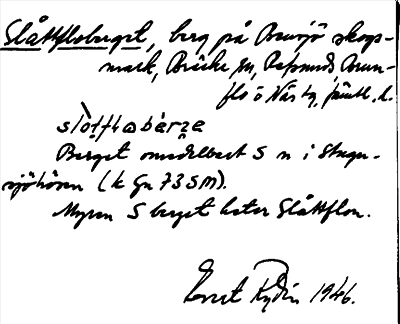 Slåttfloberget, berg på Bensjö skogs-
mark, Bräcke sn, Refsunds Brun-
flo o Näs tg, Jämtl. l.
Berget omedelbart S n i Stugu-
sjöhöjden (k Gn 73 SM).
Myren S berget heter Slåttflon.
Ernst Rydin 1946.